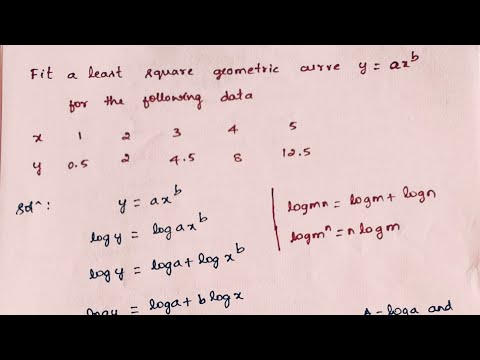 Fit a least square geometric curve y = ax^b
for the following data
x 1 2 3 4 5
y 0.5 2 4.5 8 12.5
Sol^n: y = ax^b
log y = log ax^b
log y = log a + log x^b
log y = log a + b log x
log mn = log m + log n
log m^n = n log m
A = log a and